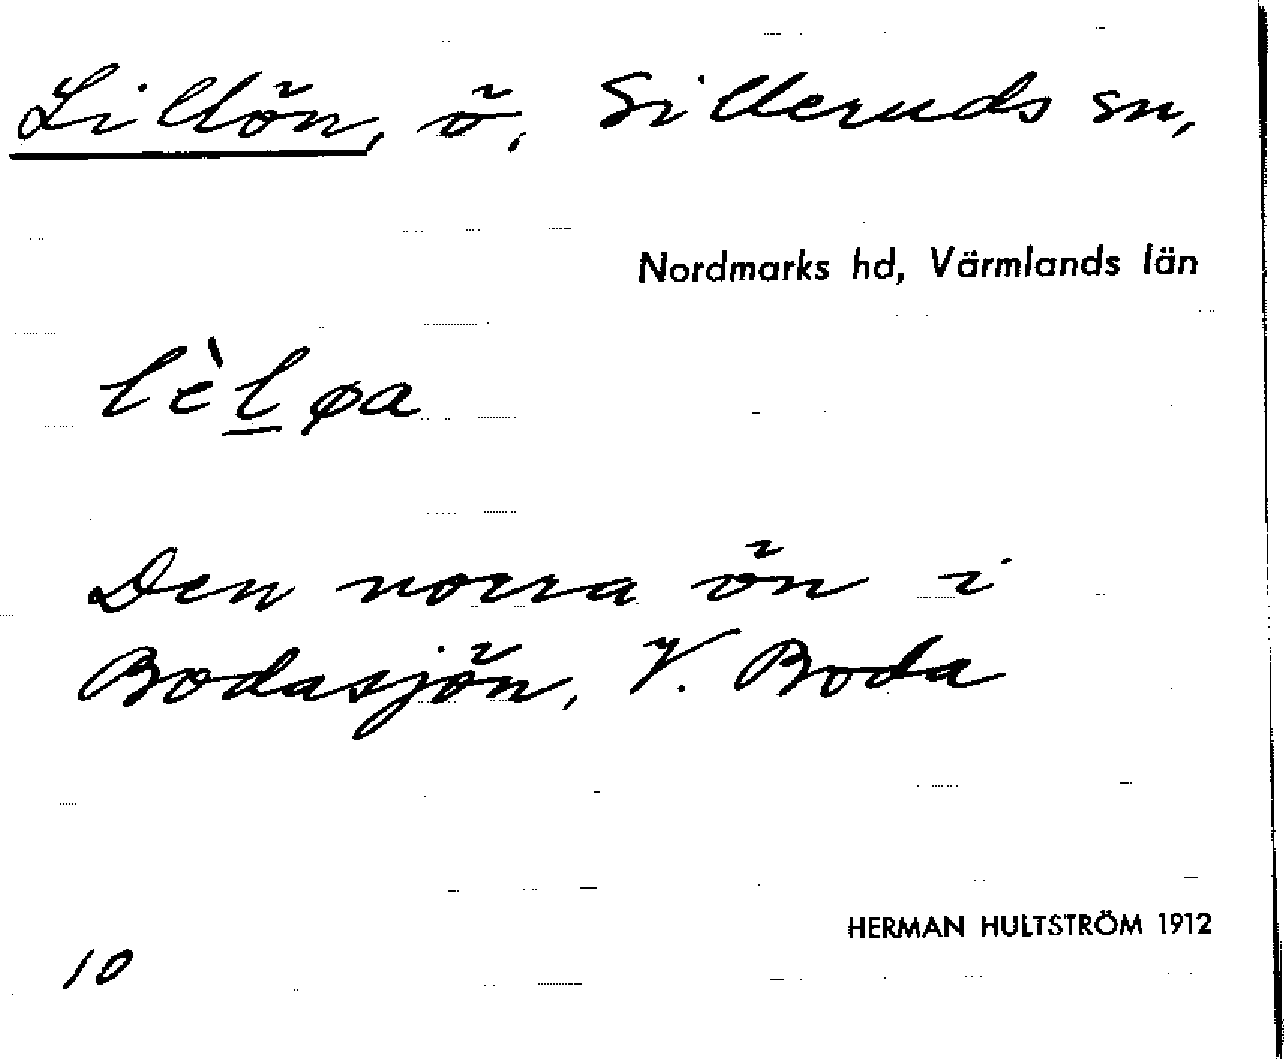 Lillön, ö, Silleruds sn,
Nordmarks hd, Värmlands län
lèl̲øa
Den norra ön i
Bodasjön, V. Boda
HERMAN HULTSTRÖM 1912
10